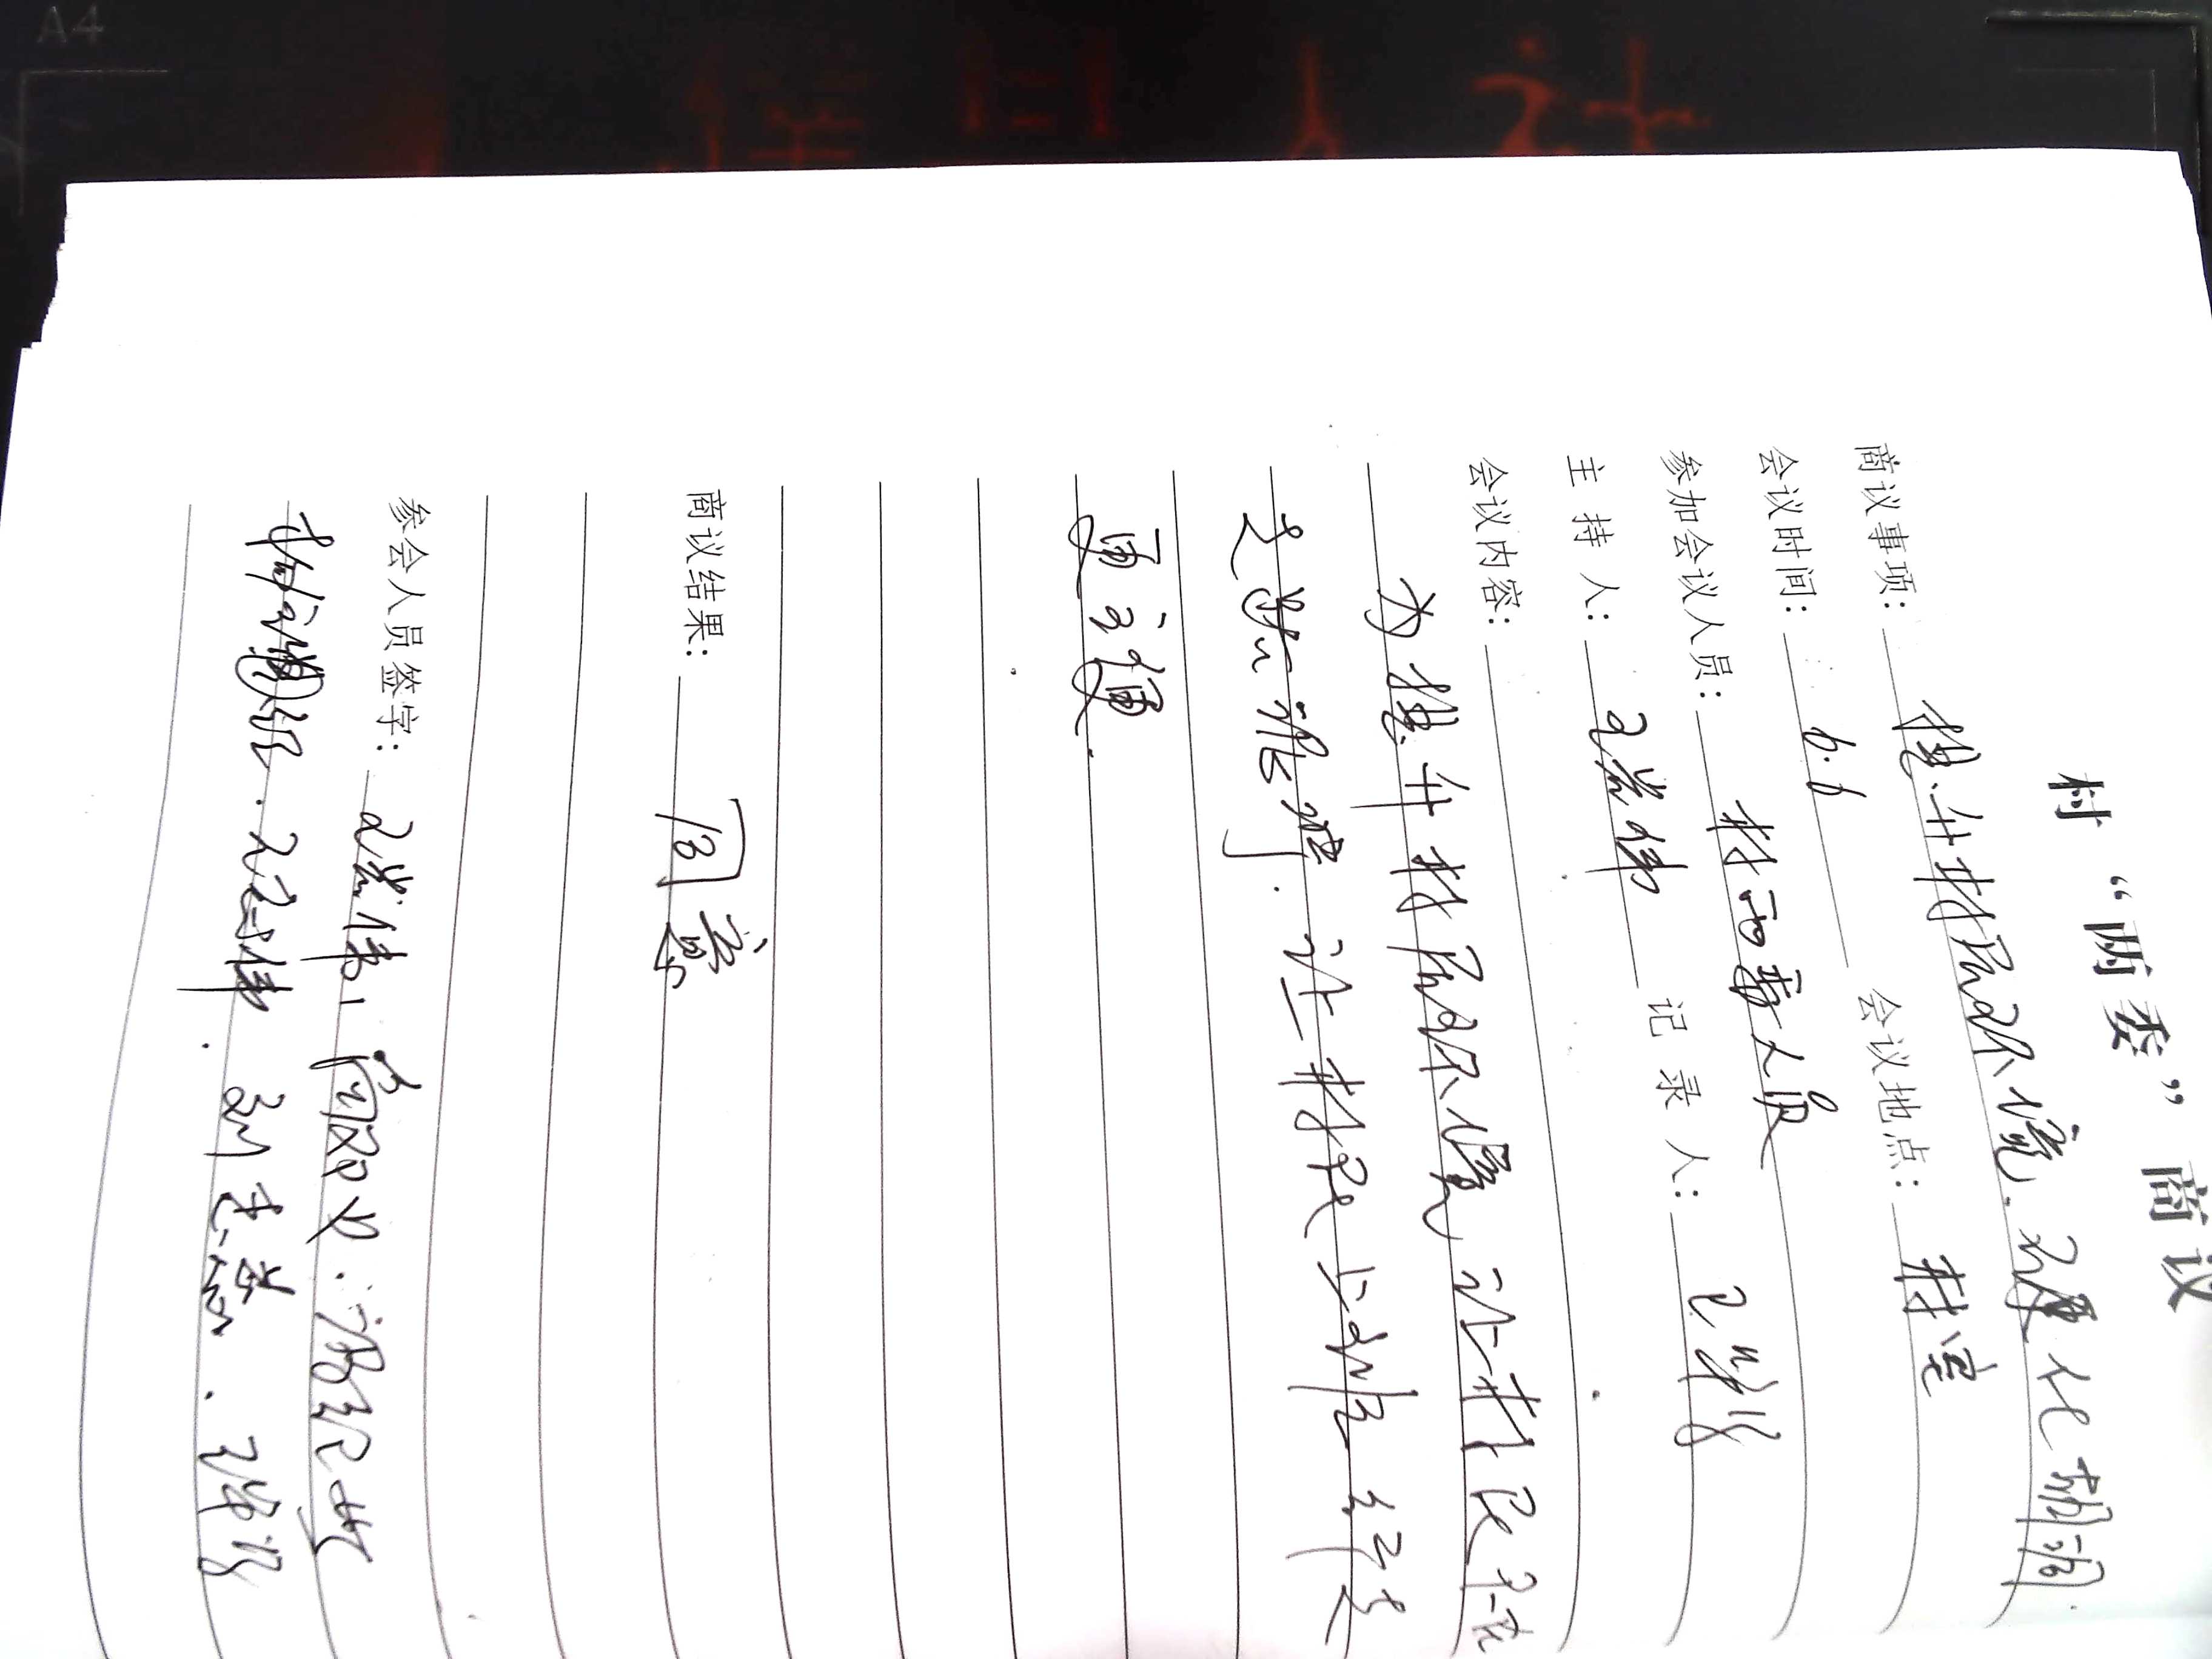 村“两委”商议
商议事项： 提升村居环境.硬化胡洞.
会议时间： 6.6 会议地点： 村室
参加会议人员： 村两委人员
主 持 人： 王岩伟 记 录 人：
会议内容：
为提升村居环境 让村民不在
走路泥泞.让村民上班行走
更方便.
商议结果： 同意
参会人员签字： 王岩伟
A4